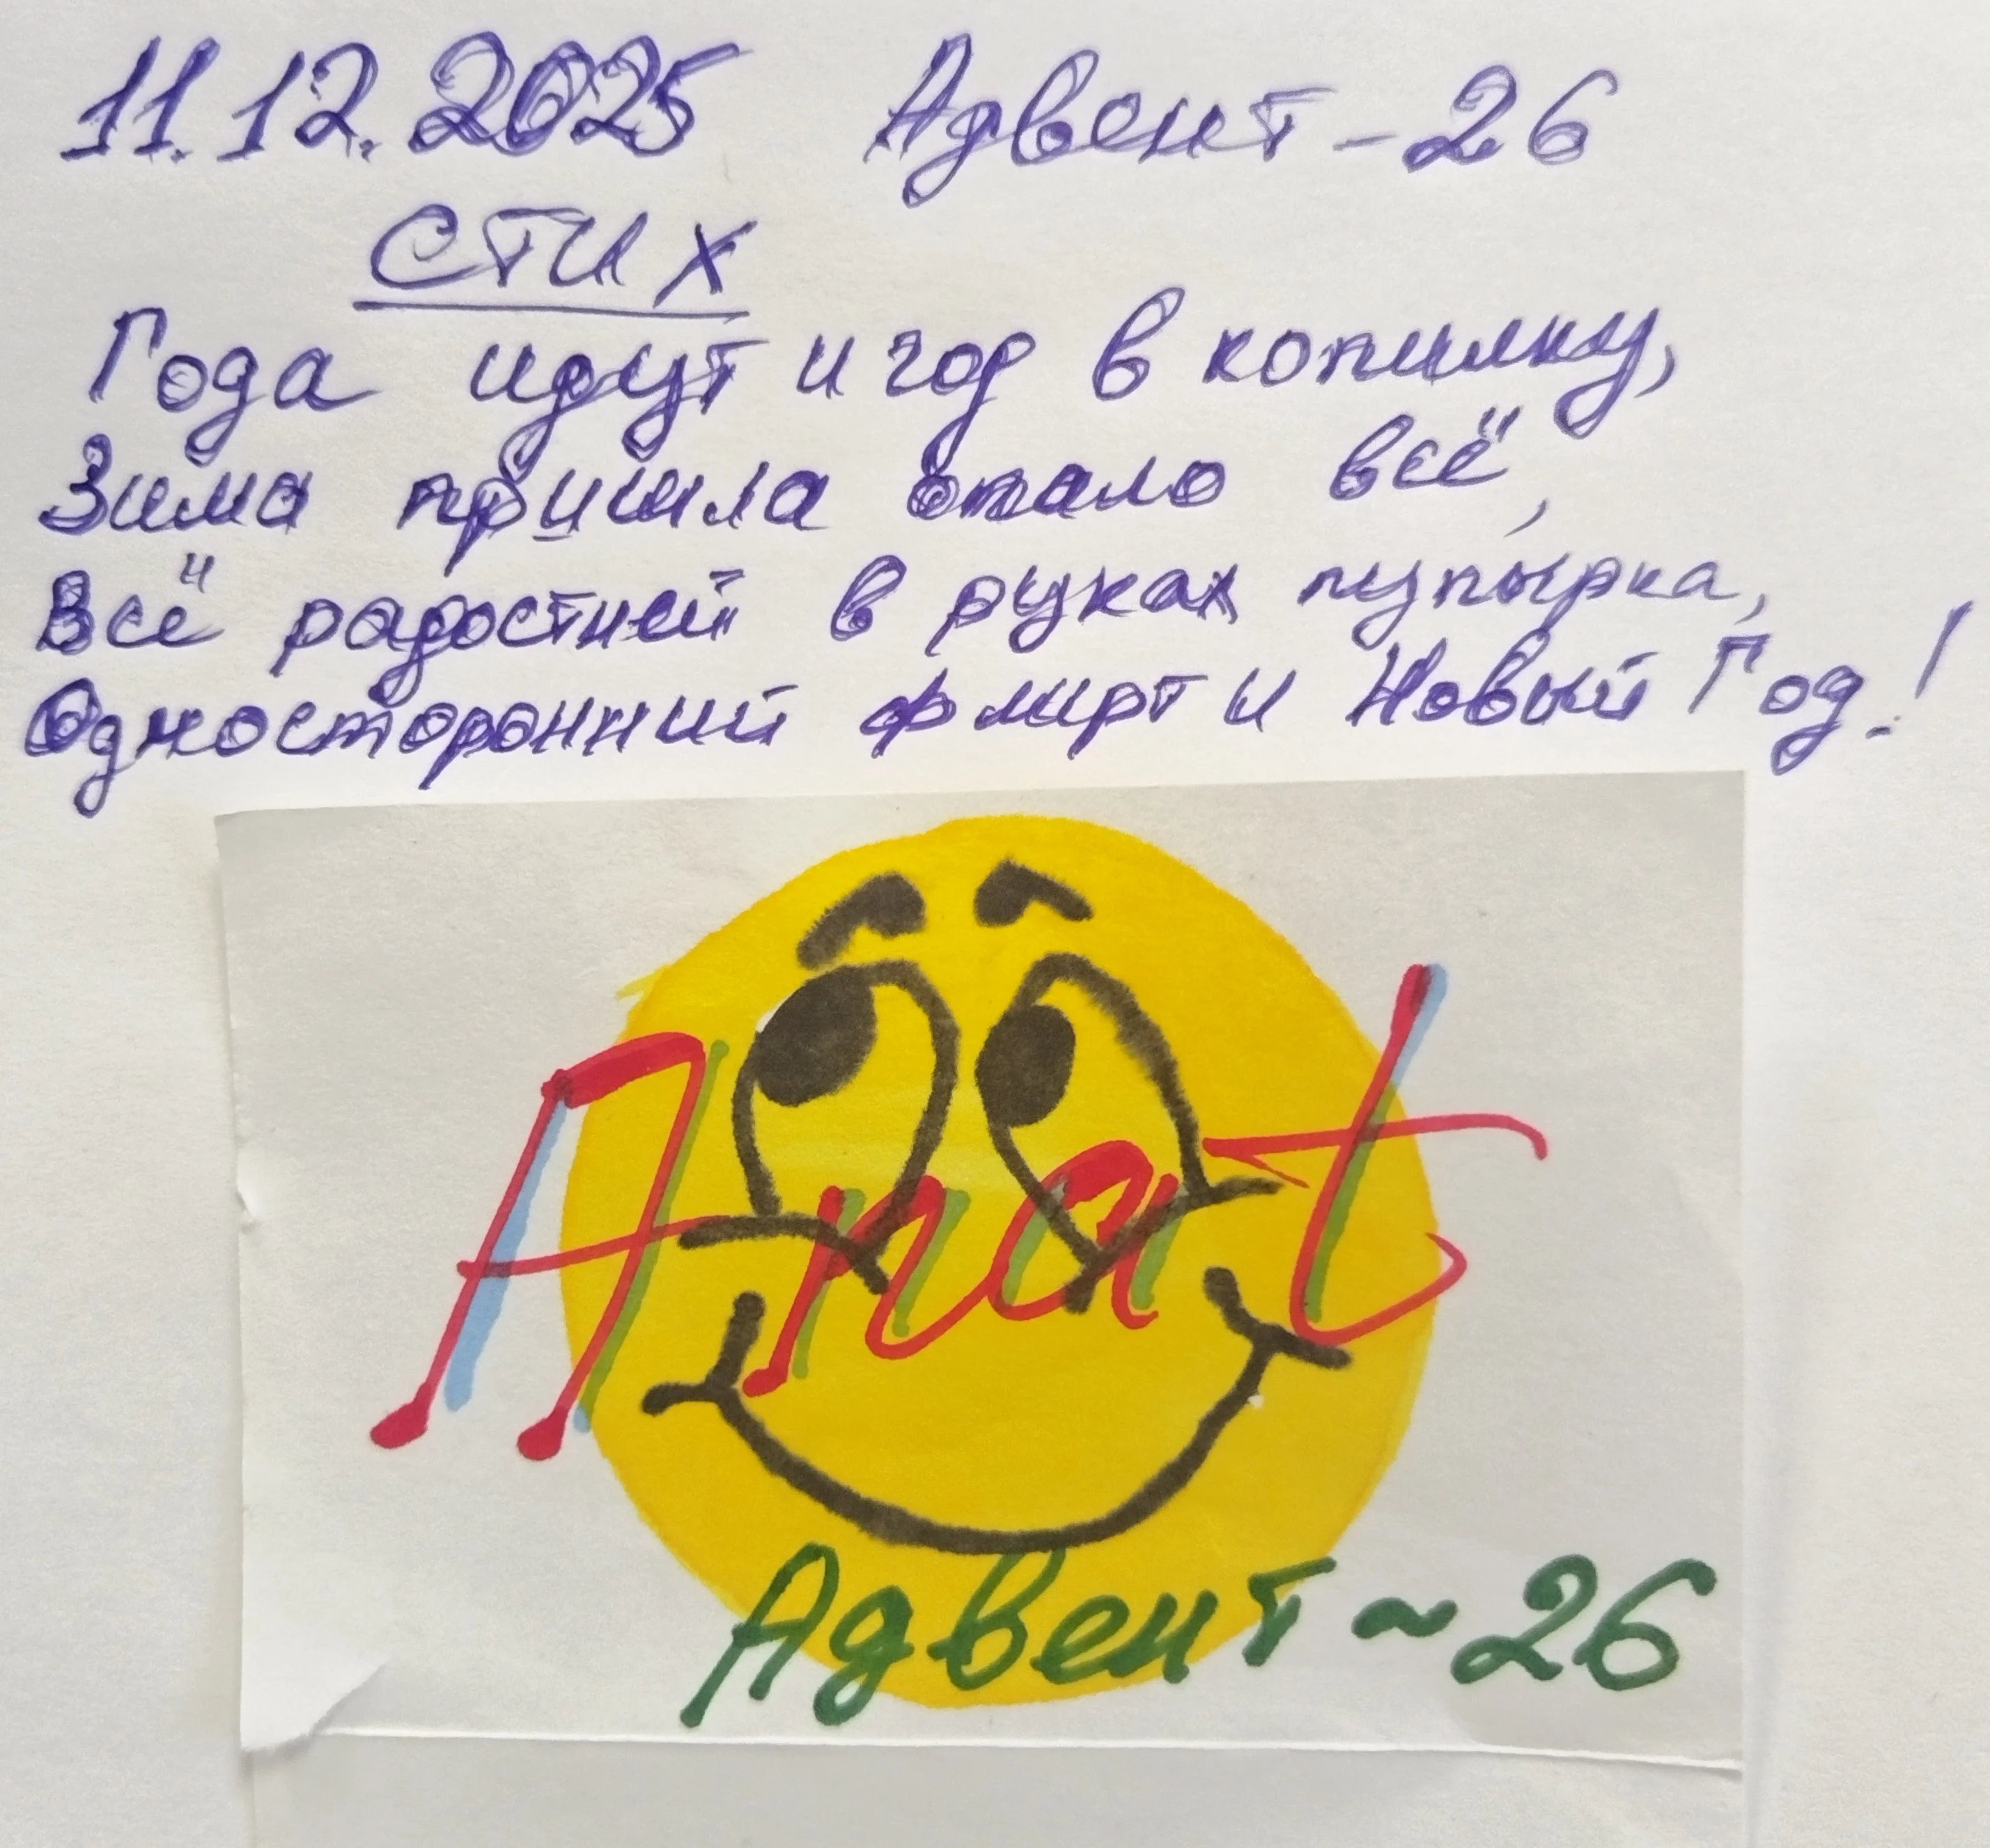 11.12.2025 Адвент-26
СТИХ
Года идут и год в копилку,
Зима пришла опало всё,
Всё радостней в руках пупырка,
Односторонний флирт и Новый Год!
Anat
Адвент~26